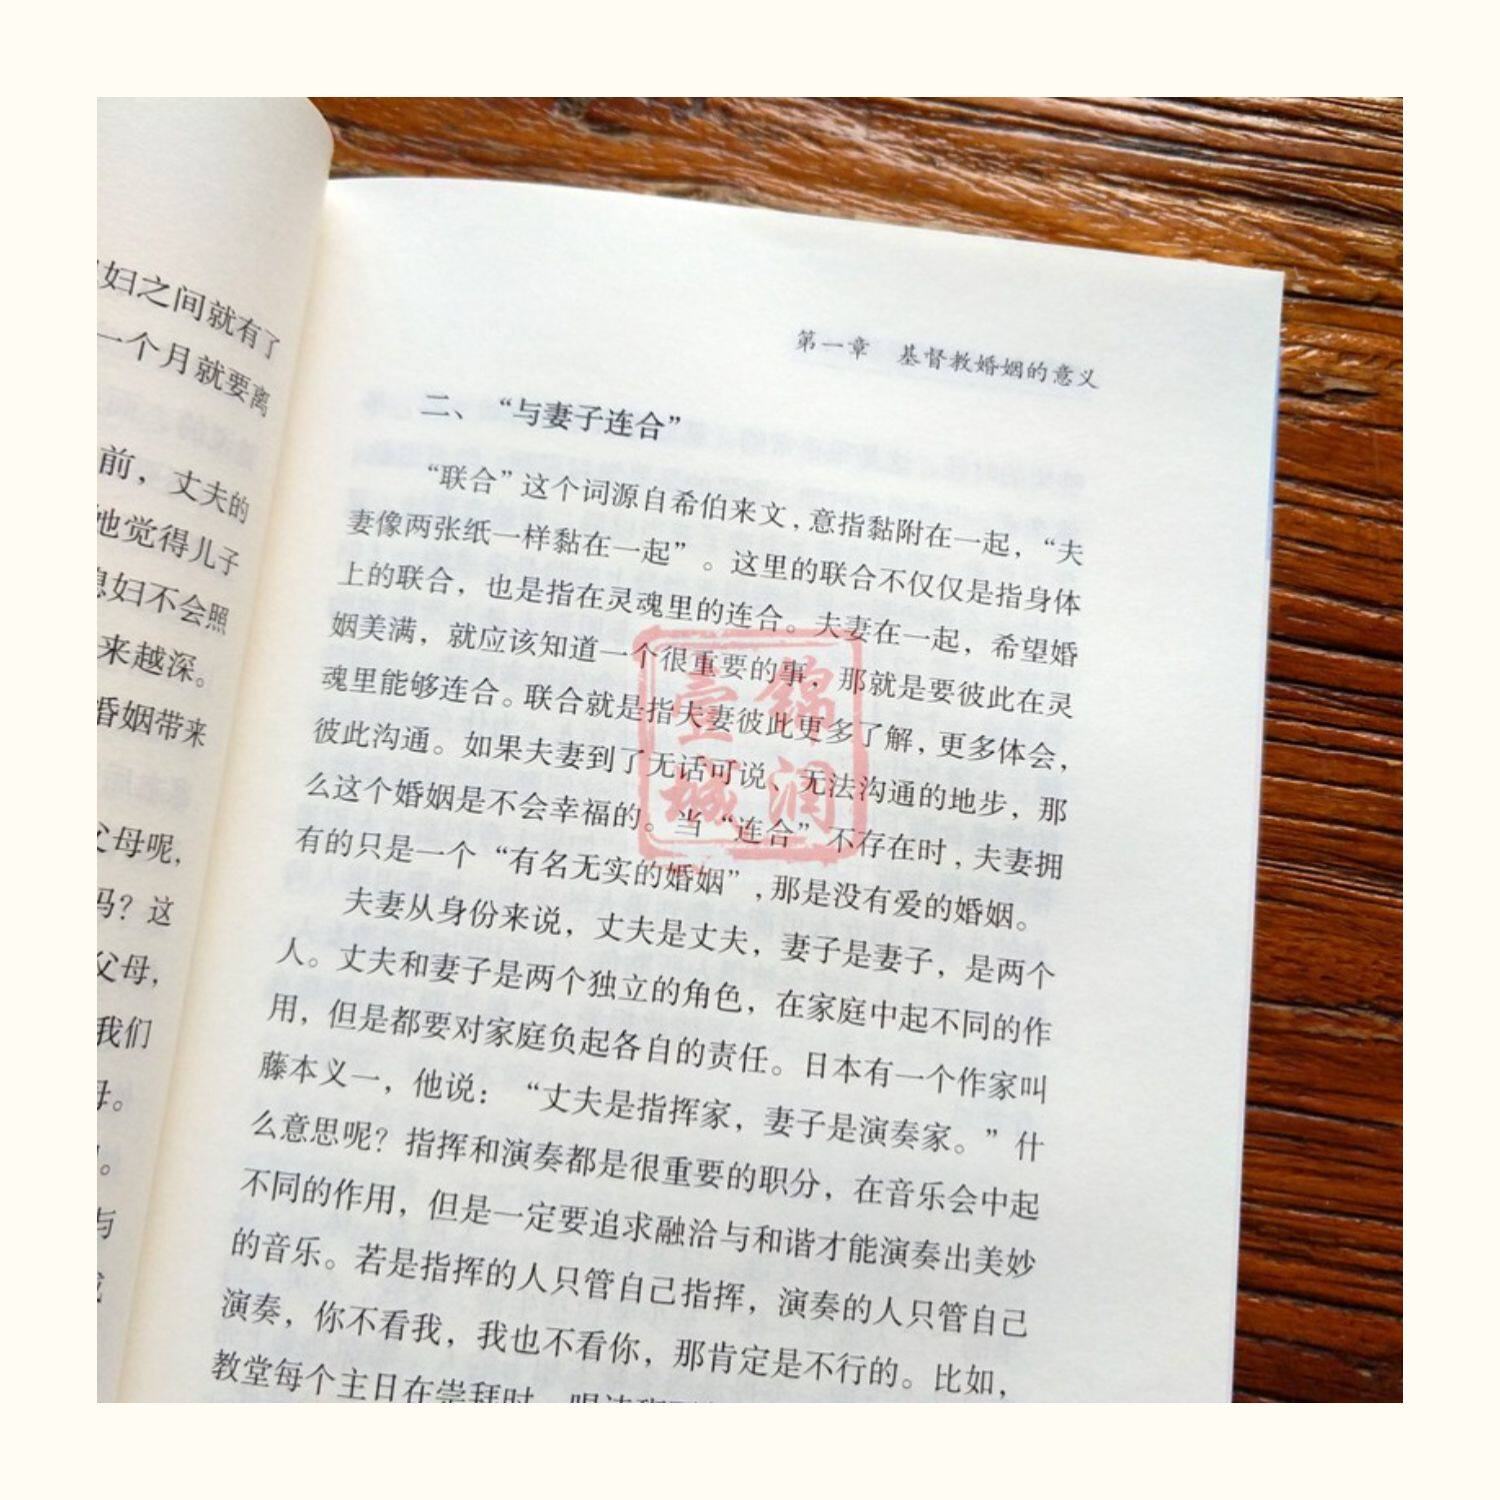 妇之间就有了
一个月就要离
前，丈夫的
他觉得儿子
媳妇不会照
来越深。
婚姻带来
父母呢，
吗？这
父母，
我们
母。
与
第一章 基督教婚姻的意义
二、“与妻子连合”
“联合”这个词源自希伯来文，意指黏附在一起，“夫
妻像两张纸一样黏在一起”。这里的联合不仅仅是指身体
上的联合，也是指在灵魂里的连合。夫妻在一起，希望婚
姻美满，就应该知道一个很重要的事，那就是要彼此在灵
魂里能够连合。联合就是指夫妻彼此更多了解，更多体会，
彼此沟通。如果夫妻到了无话可说、无法沟通的地步，那
么这个婚姻是不会幸福的。当“连合”不存在时，夫妻拥
有的只是一个“有名无实的婚姻”，那是没有爱的婚姻。
夫妻从身份来说，丈夫是丈夫，妻子是妻子，是两个
人。丈夫和妻子是两个独立的角色，在家庭中起不同的作
用，但是都要对家庭负起各自的责任。日本有一个作家叫
藤本义一，他说：“丈夫是指挥家，妻子是演奏家。”什
么意思呢？指挥和演奏都是很重要的职分，在音乐会中起
不同的作用，但是一定要追求融洽与和谐才能演奏出美妙
的音乐。若是指挥的人只管自己指挥，演奏的人只管自己
演奏，你不看我，我也不看你，那肯定是不行的。比如，
教堂每个主日在崇拜时，唱诗班
锦润
壹城